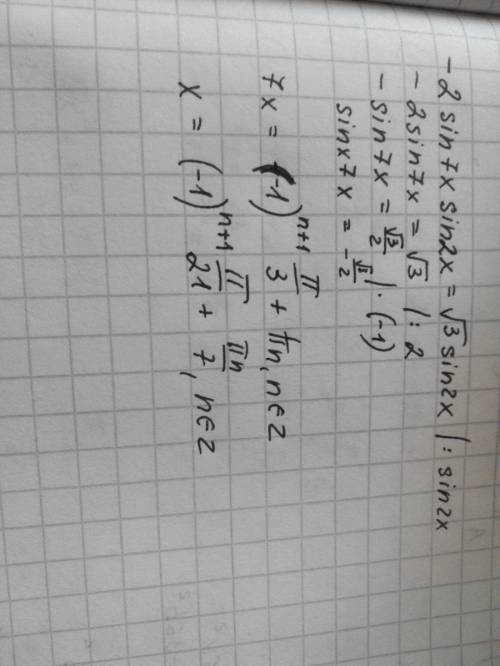 -2 sin7x sin2x = √3 sin2x |: sin2x
-2 sin7x = √3 |: 2
-sin7x = √3/2 |· (-1)
sinx7x = -√3/2
7x = (-1)^(n+1) π/3 + πn, n∈z
x = (-1)^(n+1) π/21 + πn/7, n∈z